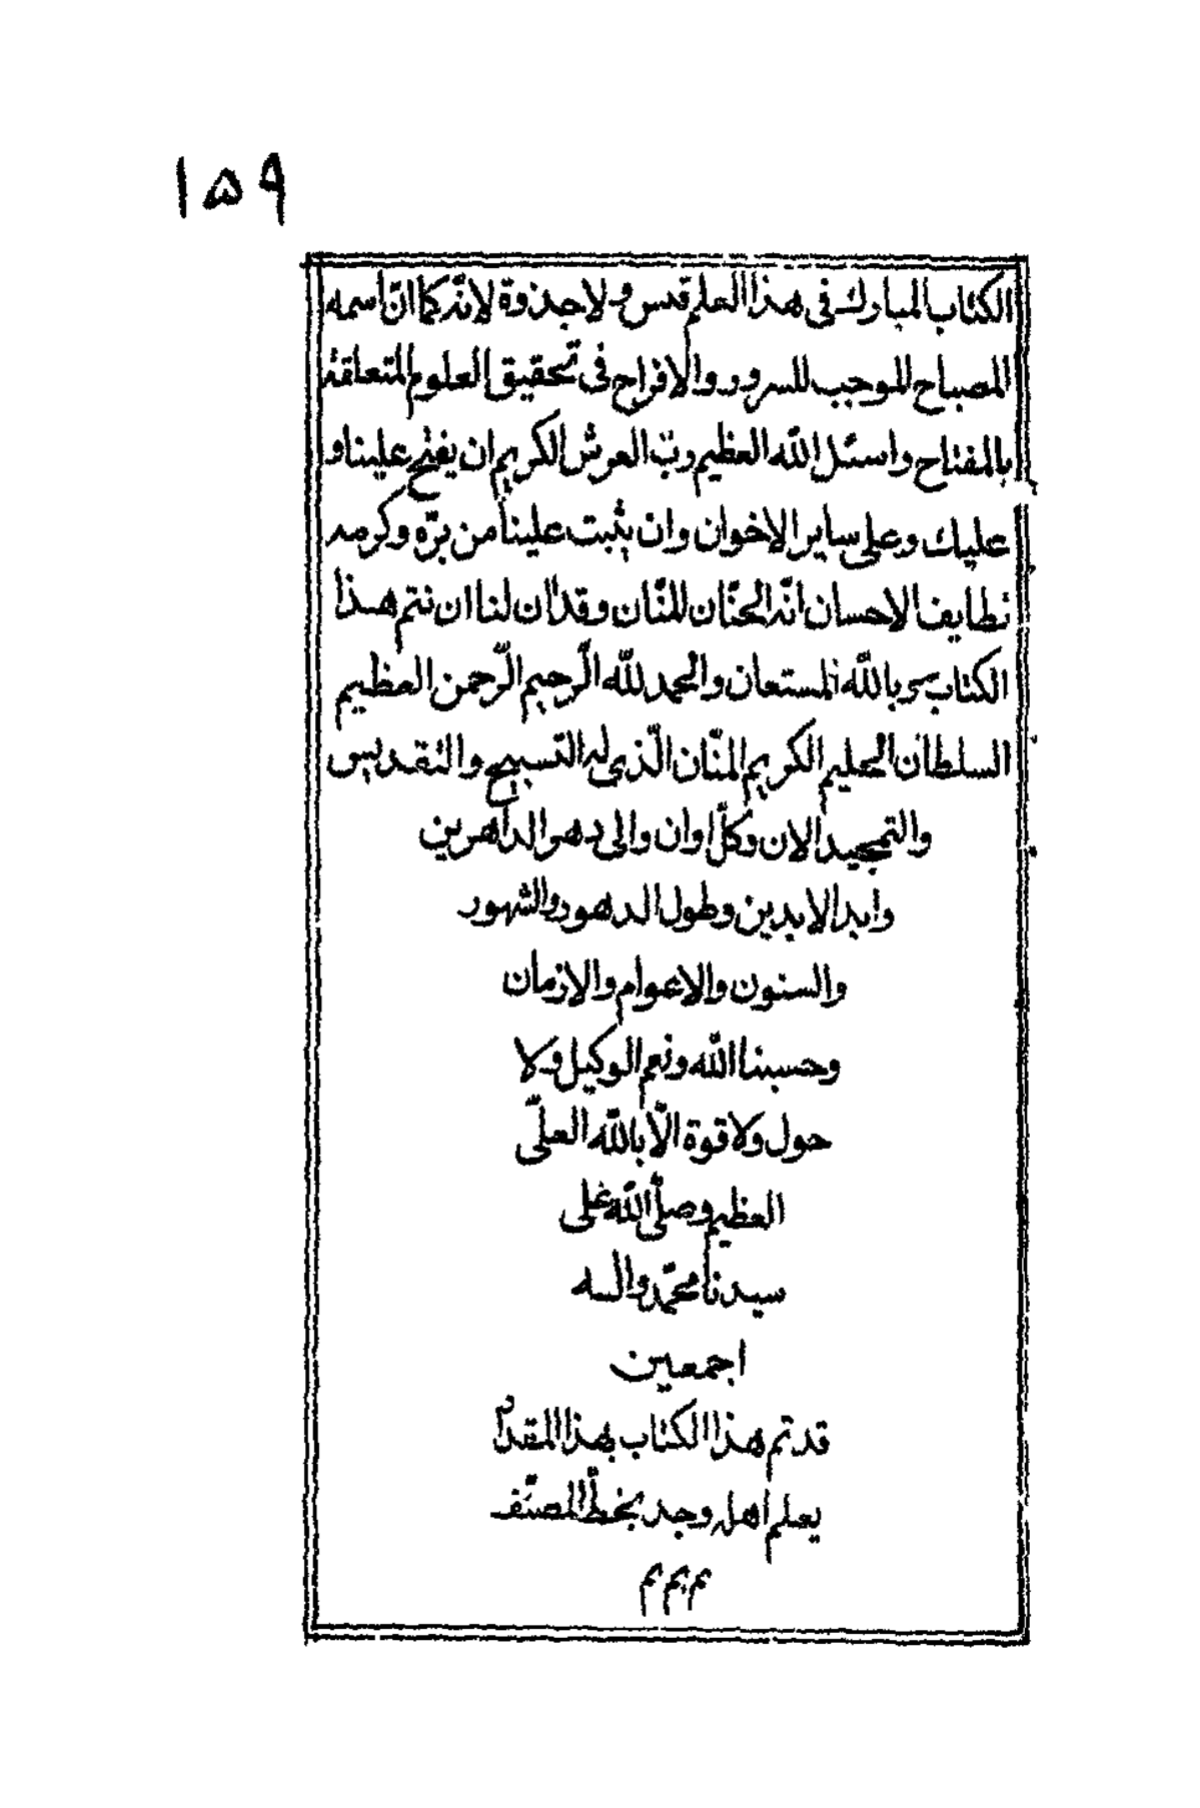 ۱۵۹
الكتاب المبارك فى هذا العلم قبس ولا جذوة لانه كما انّ اسمه
المصباح الموجب للسرور والافراح فى تحقيق العلوم المتعلقة
بالمفتاح واسئل الله العظيم ربّ العرش الكريم ان يفتح علينا و
عليك وعلى ساير الاخوان وان يثبت علينا من برّه وكرمه
نطايف الاحسان انّه الحنّان المنّان وقد ان لنا ان نتم هذا
الكتاب بالله المستعان والحمد لله الرّحيم الرّحمن العظيم
السلطان الحليم الكريم المنّان الّذى له التسبيح والتقديس
والتمجيد الان وكلّ اوان والى دهر الداهرين
وابد الابدين وطول الدهور والشهور
والسنون والاعوام والازمان
وحسبنا الله ونعم الوكيل ولا
حول ولا قوة الّا بالله العلّى
العظيم وصلّى الله على
سيدنا محمّد واله
اجمعين
قد تم هذا الكتاب بهذا المقدار
يعلم اهل وجد بخطّ المصنّف
م م م